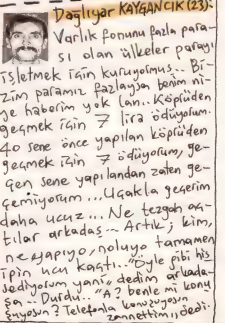 Dağlıyar KAYGANCIK (23):
Varlık fonunu fazla para-
sı olan ülkeler parayı
işletmek için kuruyormuş.. Bi-
zim paramız fazlaysa benim ni-
ye haberim yok lan.. Köprüden
geçmek için 7 lira ödüyorum.
40 sene önce yapılan köprüden
geçmek için 7 ödüyorum, ge-
çen sene yapılandan zaten ge-
çemiyorum... Uçakla geçerim
daha ucuz... Ne tezgah aç-
tılar arkadaş.. Artık; kim,
ne yapıyo, noluyo tamamen
ipin ucu kaçtı.. "Öyle gibi his
sediyorum yani" dedim arkada-
şa.. Durdu.. "A? benle mi konu
şuyosun? Telefonla konuşuyosun
zannettim" dedi.